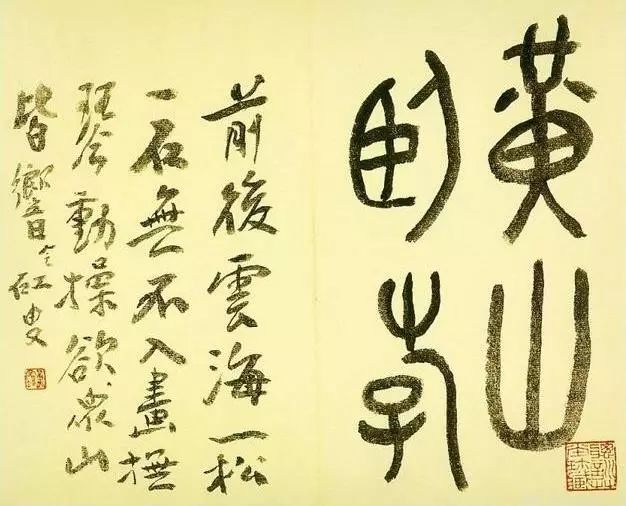 黃山
臥斿
前後雲海一松
一石無不入畫撫
琴動操欲衆山
皆響賓虹叟